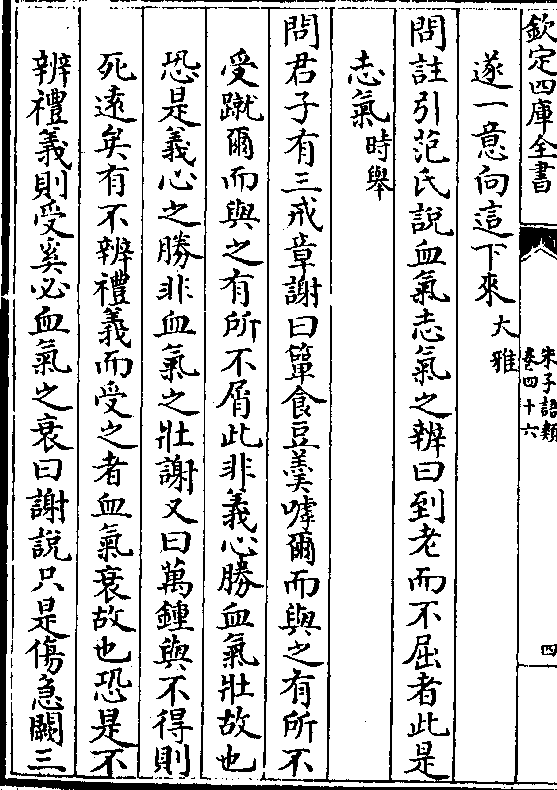 欽定四庫全書
朱子語類
卷四十六
四
遂一意向這下來大雅
問註引范氏說血氣志氣之辨曰到老而不屈者此是
志氣時舉
問君子有三戒章謝曰簞食豆羹嘑爾而與之有所不
受蹴爾而與之有所不屑此非義心勝血氣壯故也
恐是義心之勝非血氣之壯謝又曰萬鍾與不得則
死遠矣有不辨禮義而受之者血氣衰故也恐是不
辨禮義則受奚必血氣之衰曰謝說只是傷急闕三